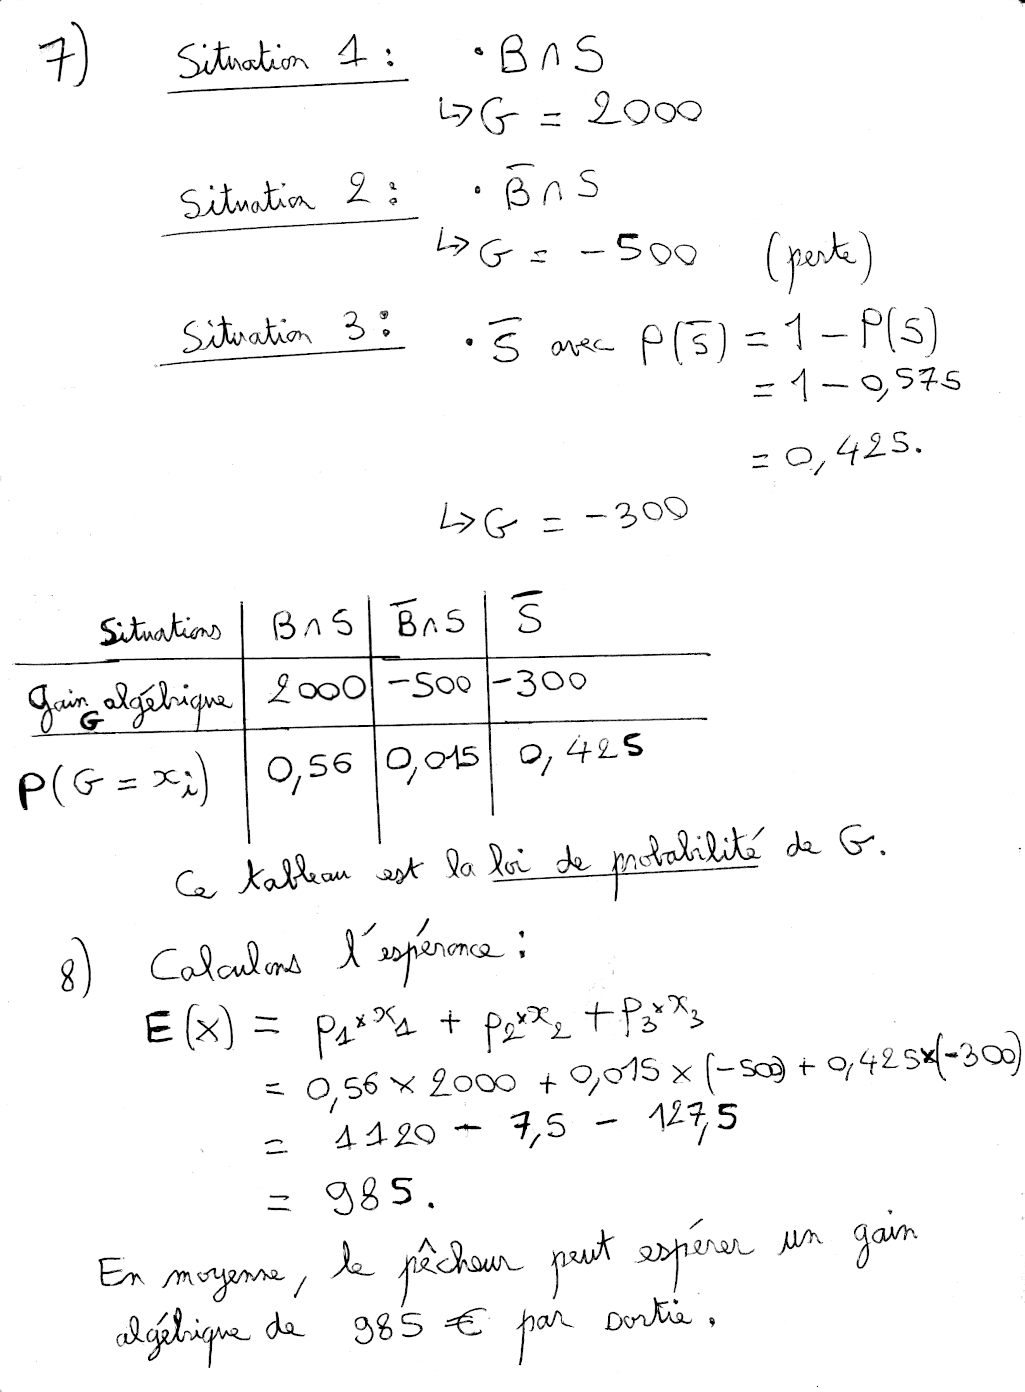 7) Situation 1 : • B ∩ S
↳ G = 2000
Situation 2 : • B̅ ∩ S
↳ G = -500 (perte)
Situation 3 : • S̅ avec P(S̅) = 1 - P(S)
= 1 - 0,575
= 0,425.
↳ G = -300
Situations | B ∩ S | B̅ ∩ S | S̅
Gain algébrique G | 2000 | -500 | -300
P(G = xi) | 0,56 | 0,015 | 0,425
Ce tableau est la loi de probabilité de G.
8) Calculons l'espérance :
E(x) = p1 × x1 + p2 × x2 + p3 × x3
= 0,56 × 2000 + 0,015 × (-500) + 0,425 × (-300)
= 1120 - 7,5 - 127,5
= 985.
En moyenne, le pêcheur peut espérer un gain
algébrique de 985 € par sortie.